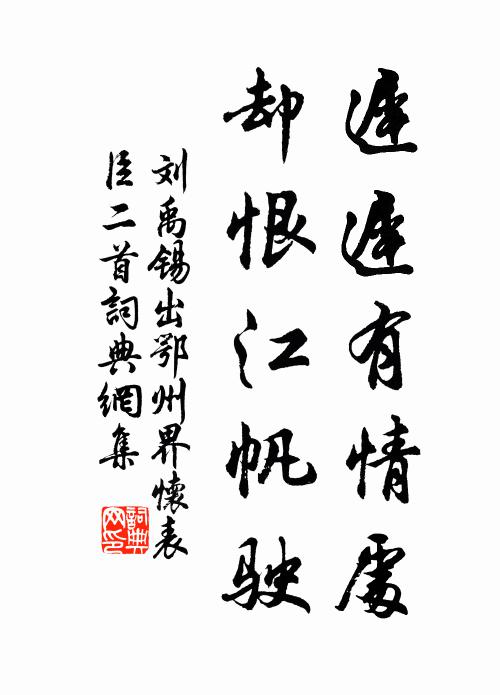 遲遲有情處
却恨江帆駛
刘禹锡出鄂州界懷表
臣二首詞典網集
詞典
网印